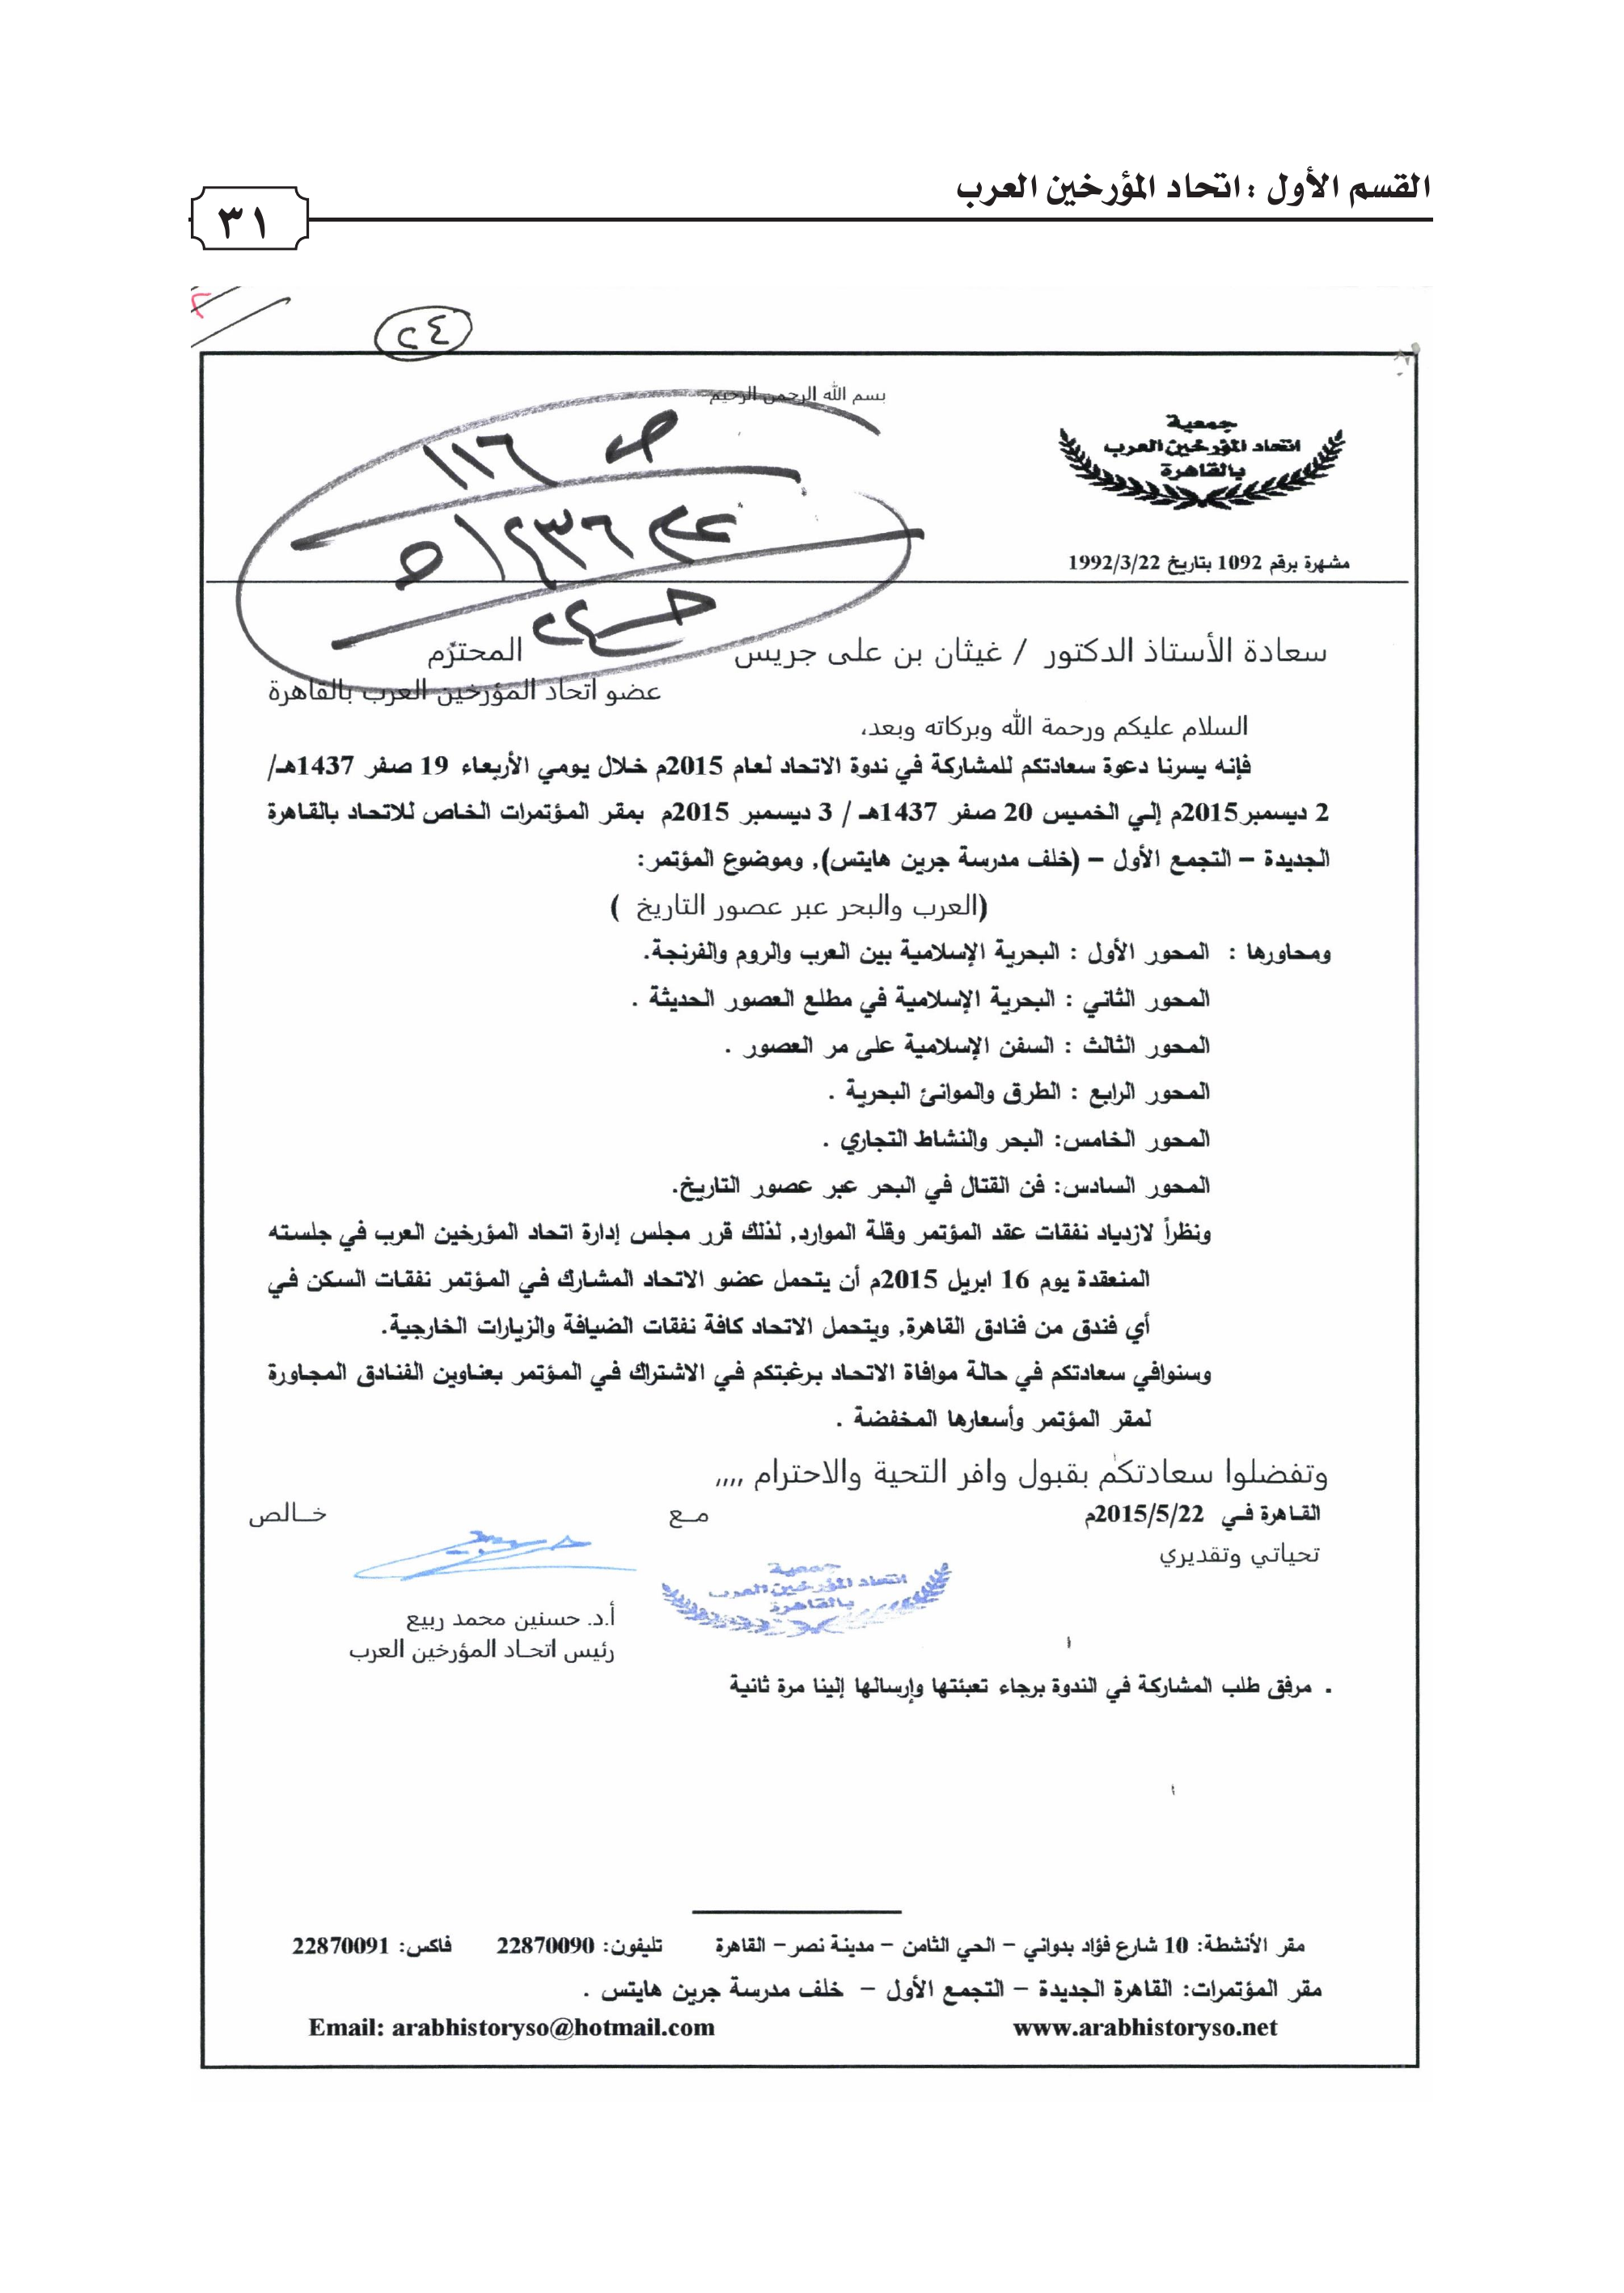 القسم الأول : اتحاد المؤرخين العرب
٣١
٢٤
بسم الله الرحمن الرحيم
جمعية
اتحاد المؤرخين العرب
بالقاهرة
ص ١١٦
١٤٣٦هـ
مشهرة برقم 1092 بتاريخ 1992/3/22
سعادة الأستاذ الدكتور / غيثان بن على جريس المحترم
عضو اتحاد المؤرخين العرب بالقاهرة
السلام عليكم ورحمة الله وبركاته وبعد،
فإنه يسرنا دعوة سعادتكم للمشاركة في ندوة الاتحاد لعام 2015م خلال يومي الأربعاء 19 صفر 1437هـ/
2 ديسمبر2015م إلي الخميس 20 صفر 1437هـ / 3 ديسمبر 2015م بمقر المؤتمرات الخاص للاتحاد بالقاهرة
الجديدة – التجمع الأول – (خلف مدرسة جرين هايتس), وموضوع المؤتمر:
(العرب والبحر عبر عصور التاريخ )
ومحاورها : المحور الأول : البحرية الإسلامية بين العرب والروم والفرنجة.
المحور الثاني : البحرية الإسلامية في مطلع العصور الحديثة .
المحور الثالث : السفن الإسلامية على مر العصور .
المحور الرابع : الطرق والموانئ البحرية .
المحور الخامس: البحر والنشاط التجاري .
المحور السادس: فن القتال في البحر عبر عصور التاريخ.
ونظراً لازدياد نفقات عقد المؤتمر وقلة الموارد, لذلك قرر مجلس إدارة اتحاد المؤرخين العرب في جلسته
المنعقدة يوم 16 ابريل 2015م أن يتحمل عضو الاتحاد المشارك في المؤتمر نفقات السكن في
أي فندق من فنادق القاهرة, ويتحمل الاتحاد كافة نفقات الضيافة والزيارات الخارجية.
وسنوافي سعادتكم في حالة موافاة الاتحاد برغبتكم في الاشتراك في المؤتمر بعناوين الفنادق المجاورة
لمقر المؤتمر وأسعارها المخفضة .
وتفضلوا سعادتكم بقبول وافر التحية والاحترام ,,,,
القاهرة في 2015/5/22م مـع خـالص
تحياتي وتقديري
جمعية
اتحاد المؤرخين العرب
بالقاهرة
أ.د. حسنين محمد ربيع
رئيس اتحـاد المؤرخين العرب
. مرفق طلب المشاركة في الندوة برجاء تعبئتها وإرسالها إلينا مرة ثانية
مقر الأنشطة: 10 شارع فؤاد بدواني – الحي الثامن – مدينة نصر– القاهرة تليفون: 22870090 فاكس: 22870091
مقر المؤتمرات: القاهرة الجديدة – التجمع الأول – خلف مدرسة جرين هايتس .
www.arabhistoryso.net Email: arabhistoryso@hotmail.com